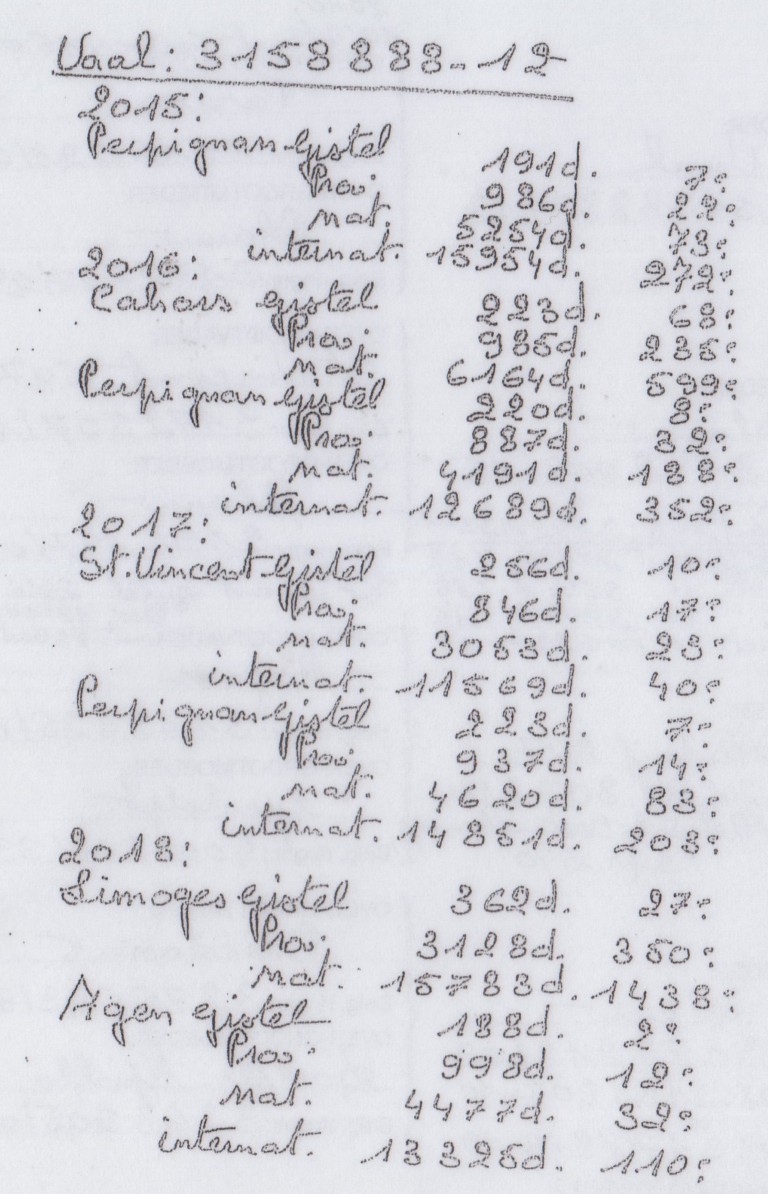 Vaal: 3158888-12
2015:
Perpignan Gistel 191d. 7e
Prov. 986d. 22e
nat. 5254d. 73e
internat. 15954d. 272e
2016:
Cahors gistel 223d. 68e
Prov. 985d. 235e
nat. 6164d. 599e
Perpignan Gistel 220d. 8e
Prov. 887d. 32e
nat. 4191d. 188e
internat. 12689d. 352e
2017:
St. Vincent Gistel 256d. 10e
Prov. 846d. 17e
nat. 3053d. 23e
internat. 11569d. 40e
Perpignan Gistel 223d. 7e
Prov. 937d. 14e
nat. 4620d. 83e
internat. 14851d. 203e
2018:
Limoges gistel 362d. 27e
Prov. 3128d. 350e
nat. 15783d. 1438e
Agen gistel 188d. 2e
Prov. 998d. 12e
nat. 4477d. 32e
internat. 13325d. 110e